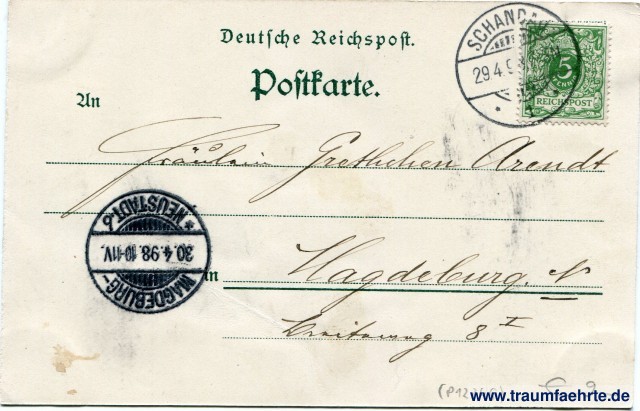 Deutsche Reichspost.
Postkarte.
SCHANDAU
29.4.98
5
REICHSPOST
An
Fräulein Gretchen Arendt
MAGDEBURG-
30.4.98.10-11V.
* NEUSTADT. 6
in
Magdeburg. N
Breiteweg 8 I
www.traumfaehrte.de